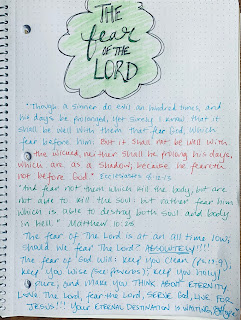 THE
fear
OF THE
LORD
"Though a sinner do evil an hundred times, and
his days be prolonged, yet surely I know that it
shall be well with them that fear God, which
fear before him: But it shall not be well with
the wicked, neither shall he prolong his days,
which are as a shadow; because he feareth
not before God." Ecclesiastes 8:12-13
"And fear not them which kill the body, but are
not able to kill the soul: but rather fear him
which is able to destroy both soul and body
in hell." Matthew 10:28
The fear of The Lord is at an all time low,
should we fear The Lord? ABSOLUTELY!!!!
The fear of God will: keep you clean (Ps. 19:9),
keep you wise (see proverbs), keep you holy/
pure, and make you THINK ABOUT ETERNITY.
Love The Lord, fear the Lord, SERVE GOD, LIVE FOR
JESUS!!! YOUR ETERNAL DESTINATION IS WAITING